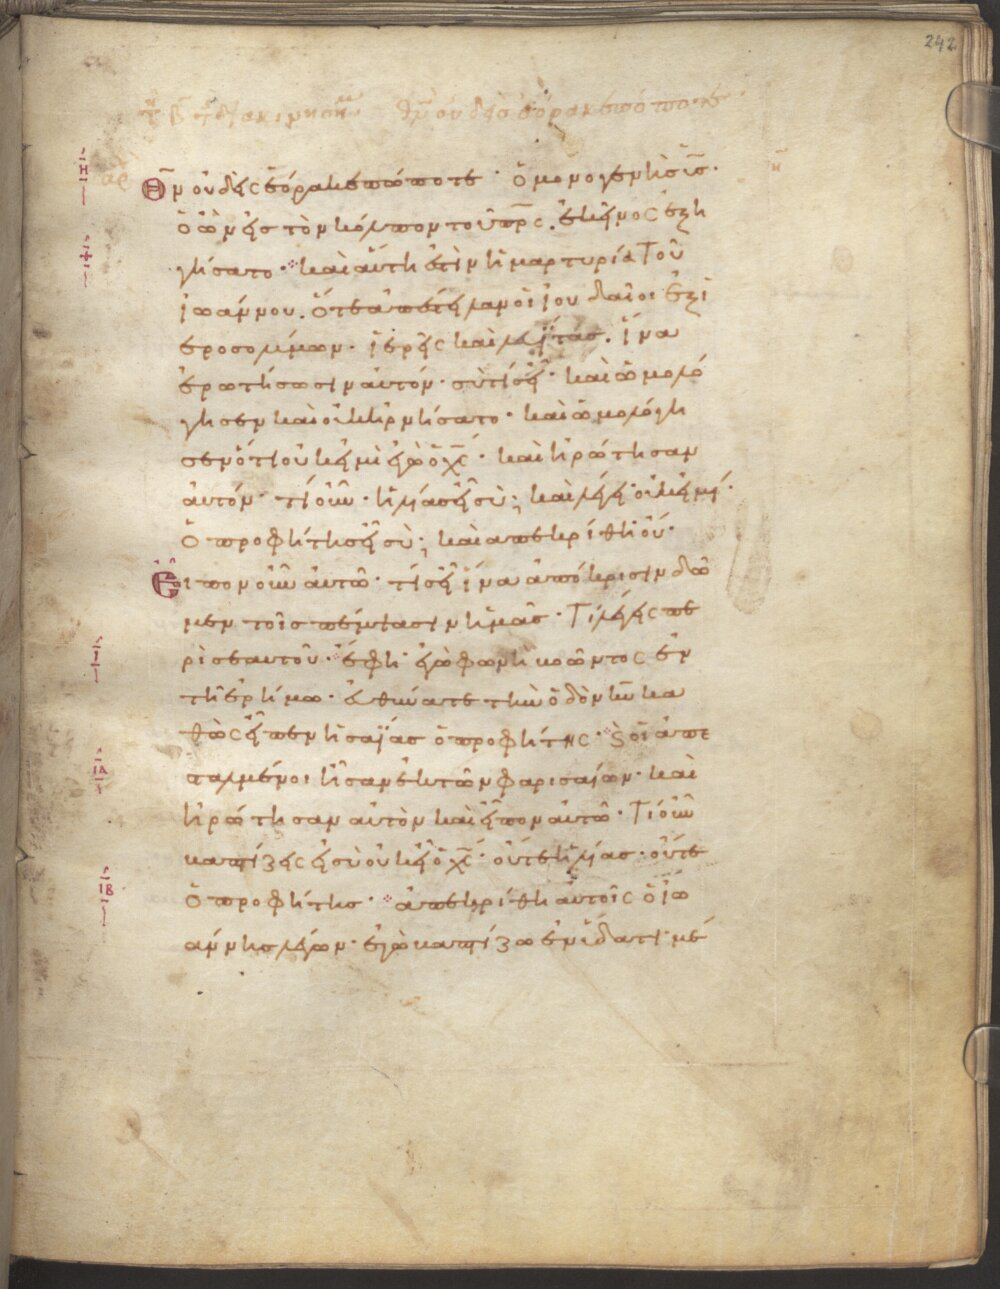 242
τῇ β τῆς διακινησίμου θν οὐδεὶς ἑόρακε πώποτε
αρ
Η
Θν οὐδεὶς ἑόρακε πώποτε · ὁ μονογενὴς υἱς ·
ὁ ὢν εἰς τὸν κόλπον τοῦ πρς . ἐκεῖνος ἐξη
γήσατο · καὶ αὕτη ἐστὶν ἡ μαρτυρία τοῦ
ἰωάννου . ὅτε ἀπέστειλαν οἱ ἰουδαῖοι ἐξ ἱ
εροσολύμων · ἱερεῖς καὶ λευΐτας . ἵνα
ἐρωτήσωσιν αὐτόν · σὺ τίς εἶ · καὶ ὡμολό
γησεν καὶ οὐκ ἠρνήσατο · καὶ ὡμολόγη
σεν ὅτι οὐκ εἰμὶ ἐγὼ ὁ χς · καὶ ἠρώτησαν
αὐτόν · τί οὖν · ἠλίας εἶ σύ ; καὶ λέγει οὐκ εἰμί ·
ὁ προφήτης εἶ σύ ; καὶ ἀπεκρίθη οὔ ·
Εἶπον οὖν αὐτῷ · τίς εἶ ἵνα ἀπόκρισιν δῶ
μεν τοῖς πέμψασιν ἡμᾶς · Τί λέγεις πε
ρὶ σεαυτοῦ · ἔφη ἐγὼ φωνὴ βοῶντος ἐν
τῇ ἐρήμω · εὐθύνατε τὴν ὁδὸν κυ κα
θὼς εἶπεν ἡσαΐας ὁ προφήτης · Ϛ οἱ ἀπε
σταλμένοι ἦσαν ἐκ τῶν φαρισαίων · καὶ
ἠρώτησαν αὐτὸν καὶ εἶπον αὐτῶ · Τί οὖν
βαπτίζεις εἰ σὺ οὐκ εἶ ὁ χς · οὔτε ἠλίας · οὔτε
ὁ προφήτης · ἀπεκρίθη αὐτοῖς ὁ ἰω
άννης λέγων · ἐγὼ βαπτίζω ἐν ὕδατι · μέ
Ι
ΙΑ
ΙΒ